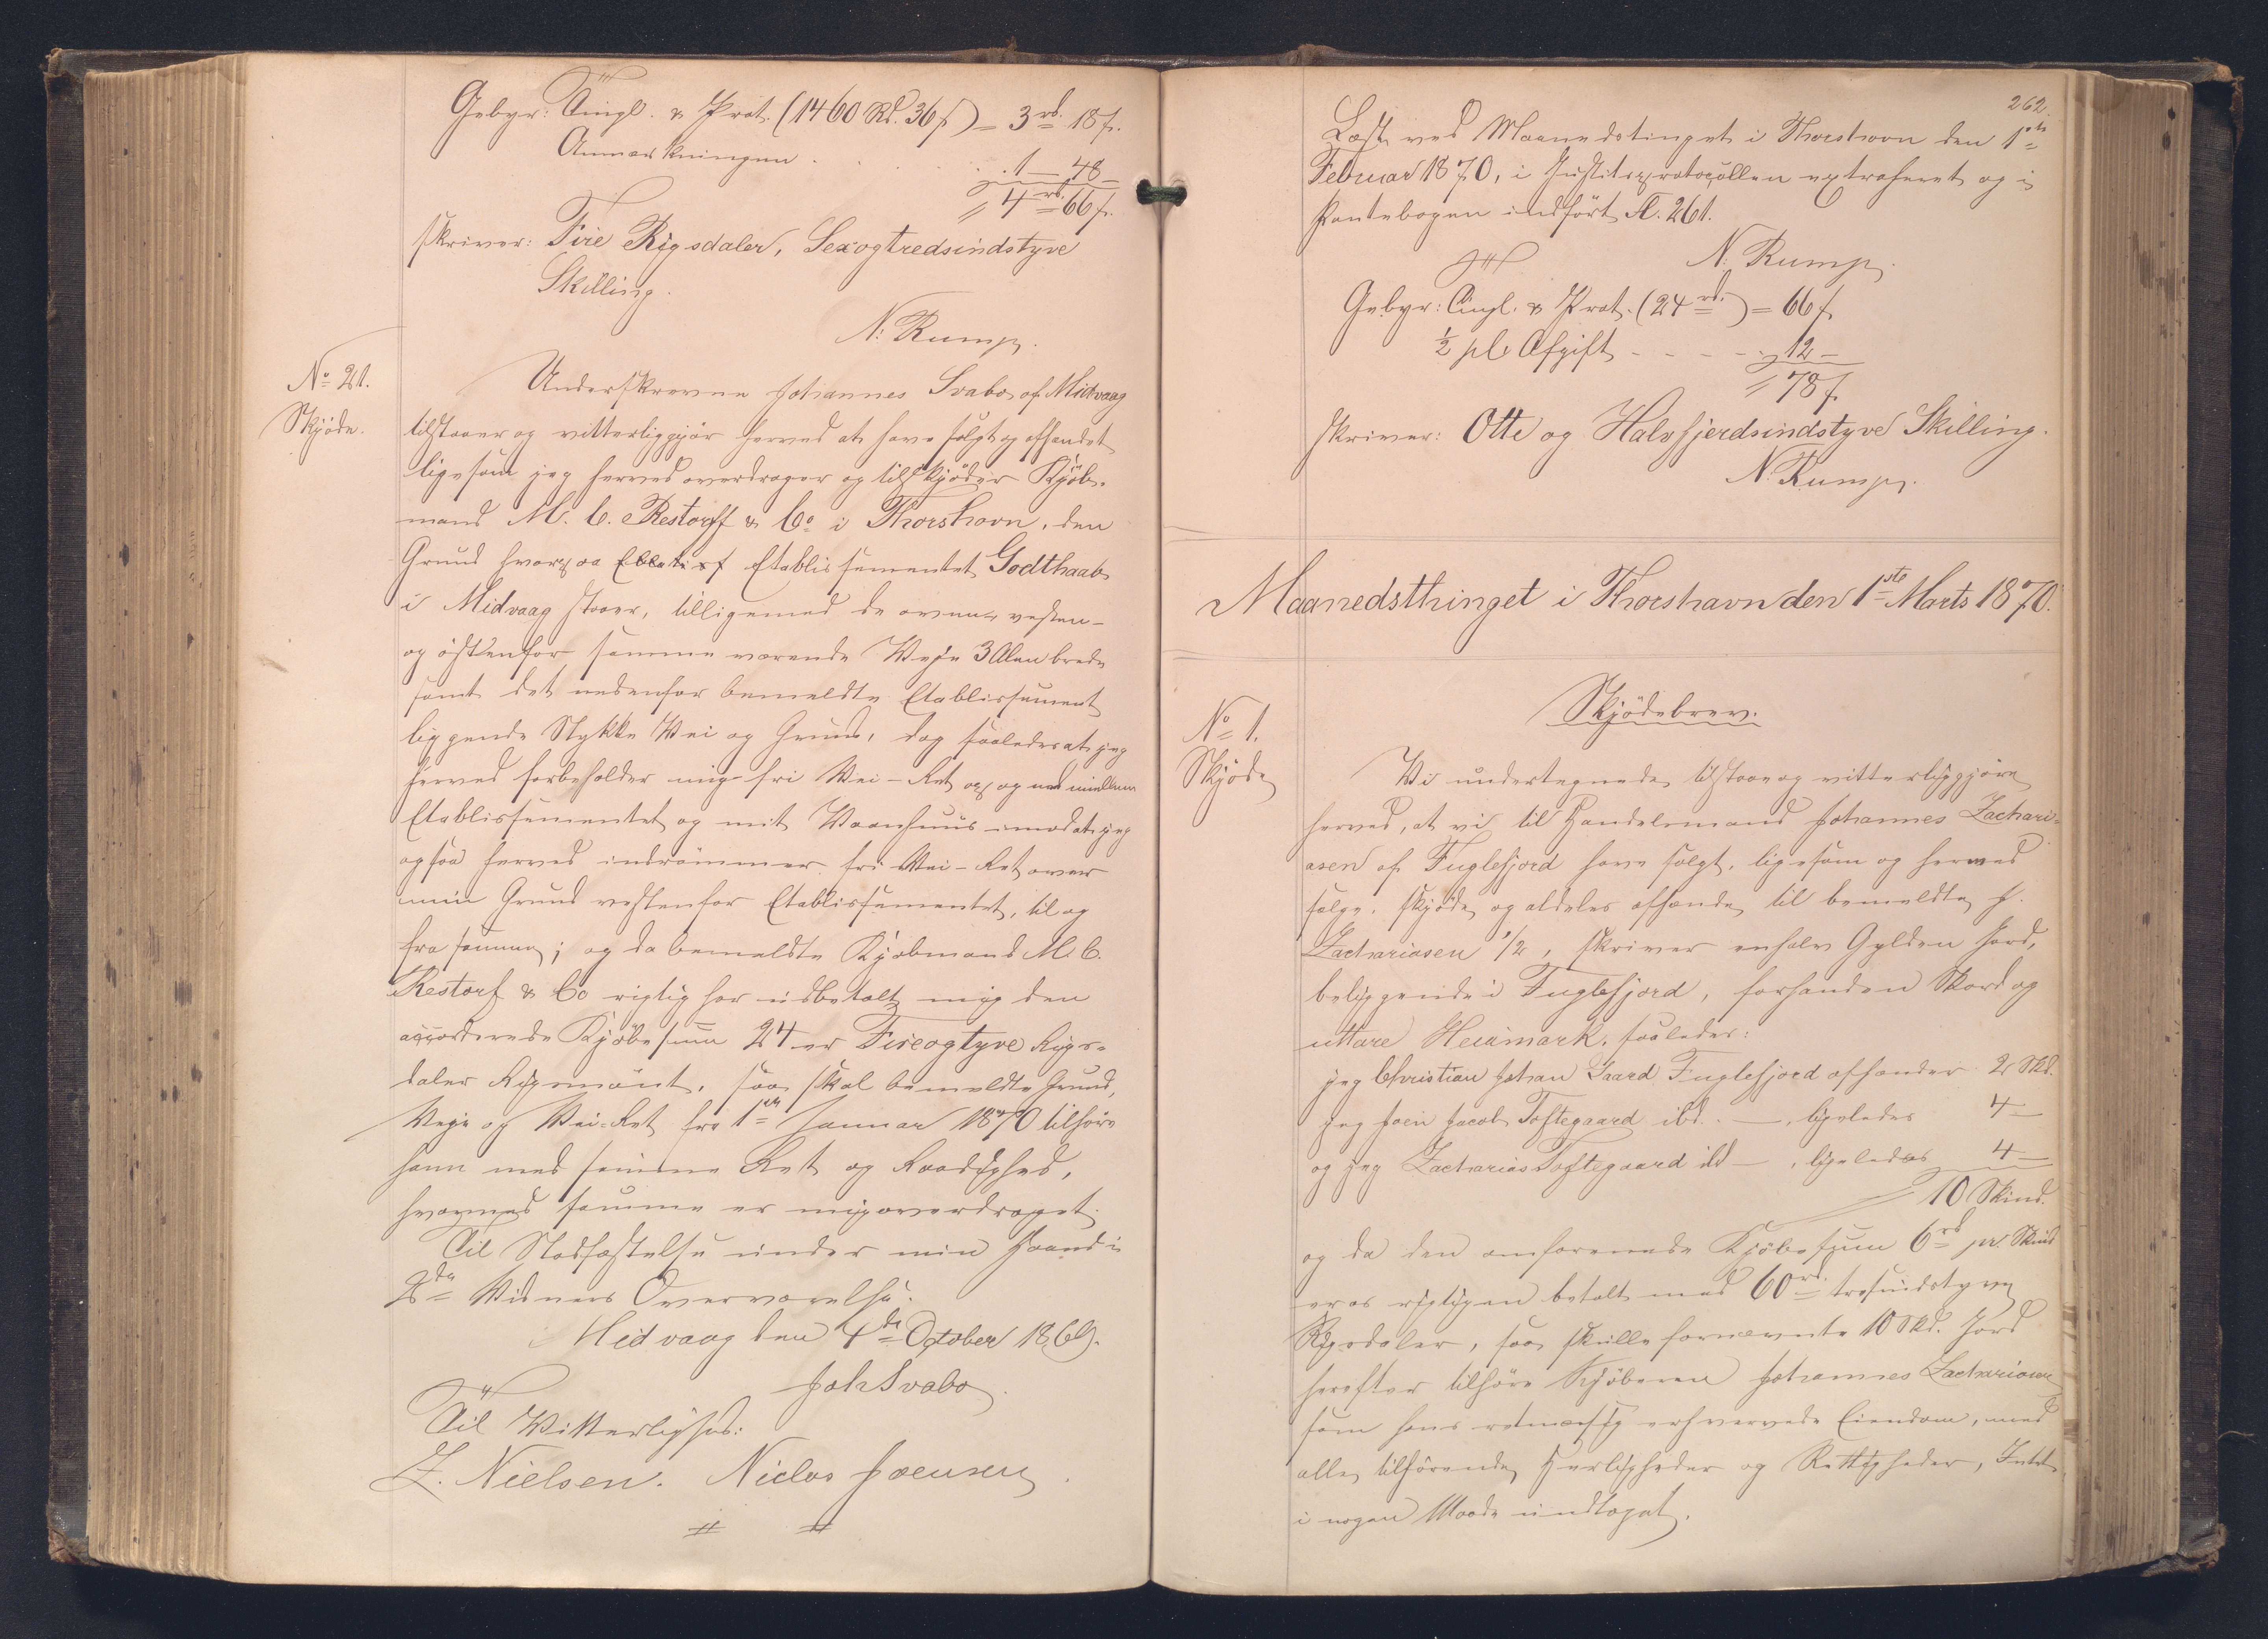 Gebyr: Tingl. & Prot. (1460 Rd. 36 s) = 3 rd. 18 s.
Anmærkningen . . . 1 — 48 —
4 rd. 66 s.
skriver: Fire Rigsdaler, Sexogtredsindstyve
Skilling.
N. Rump.
No 21.
Skjöde.
Underskrevne Johannes Svabo af Midvaag
tilstaaer og vitterliggjör herved at have solgt og afhændet
ligesom jeg herved overdrager og tilskjöder Kjöb-
mand M. C. Restorff & Co i Thorshavn, den
Grund hvorpaa Etablissementet Godthaab
i Midvaag staaer, tilligemed de oven- vesten-
og östenfor samme værende Veje 3 Alen brede
samt det nedenfor bemeldte Etablissement
liggende Stykke Vei og Grund, dog saaledes at jeg
herved forbeholder mig fri Vei-Ret op og ned mellem
Etablissementet og mit Vaanhuus imod at jeg
ogsaa herved indrömmer fri Vei-Ret over
min Grund vestenfor Etablissementet, til og
fra samme; og da bemeldte Kjöbmand M. C.
Restorf & Co rigtig har udbetalt mig den
accorderede Kjöbesum 24 er Fireogtyve Rigs-
daler Rigsmönt, saa skal bemeldte Grund,
Veje og Vei-Ret fra 1ste Januar 1870 tilhöre
ham med samme Ret og Raadighed,
hvormed samme er mig overdraget.
Til Stadfæstelse under min Haand i
2de Vidners Overværelse.
Midvaag den 4de October 1869.
Joh Svabo
Til Vitterlighed:
Z. Nielsen. Niclas Joensen.
262.
Læst ved Maanedstinget i Thorshavn den 1ste
Februar 1870, i Justitsprotocollen extraheret og i
Pantebogen indfört Fl. 261.
N. Rump.
Gebyr: Tingl. & Prot. (24 rd.) = 66 s
½ pCt Afgift - - - - 12 -
78 s
skriver: Otte og Halvfjerdsindstyve Skilling.
N. Rump.
Maanedsthinget i Thorshavn den 1ste Marts 1870.
Skjödebrev.
No 1.
Skjöde
Vi undertegnede tilstaae og vitterliggjöre
herved, at vi til Handelsmand Johannes Zachari-
asen af Fuglefjord have solgt, ligesom og herved
sælge, skjöde og aldeles afhænde til bemeldte J.
Zachariasen 1/2, skriver en halv Gylden Jord,
beliggende i Fuglefjord, forhanden Skord og
uttare Heimark, saaledes:
jeg Christian Johan Gaard Fuglefjord afhænder 2 Skd.
jeg Joen Jacob Toftegaard ibd. — , ligeledes 4 —
og jeg Zacharias Toftegaard ibd — , ligeledes 4 —
10 Skind.
og da den omforenede Kjöbesum 6 rd pr. Skind
er os rigtigen betalt med 60 rd. tresindstyve
Rigsdaler, saa skulle fornævnte 10 Skd. Jord
herefter tilhöre Kjöberen Johannes Zachariasen
som hans retmæssig erhvervede Eiendom, med
alle tilhörende Herligheder og Rettigheder, Intet
i nogen Maade undtaget.